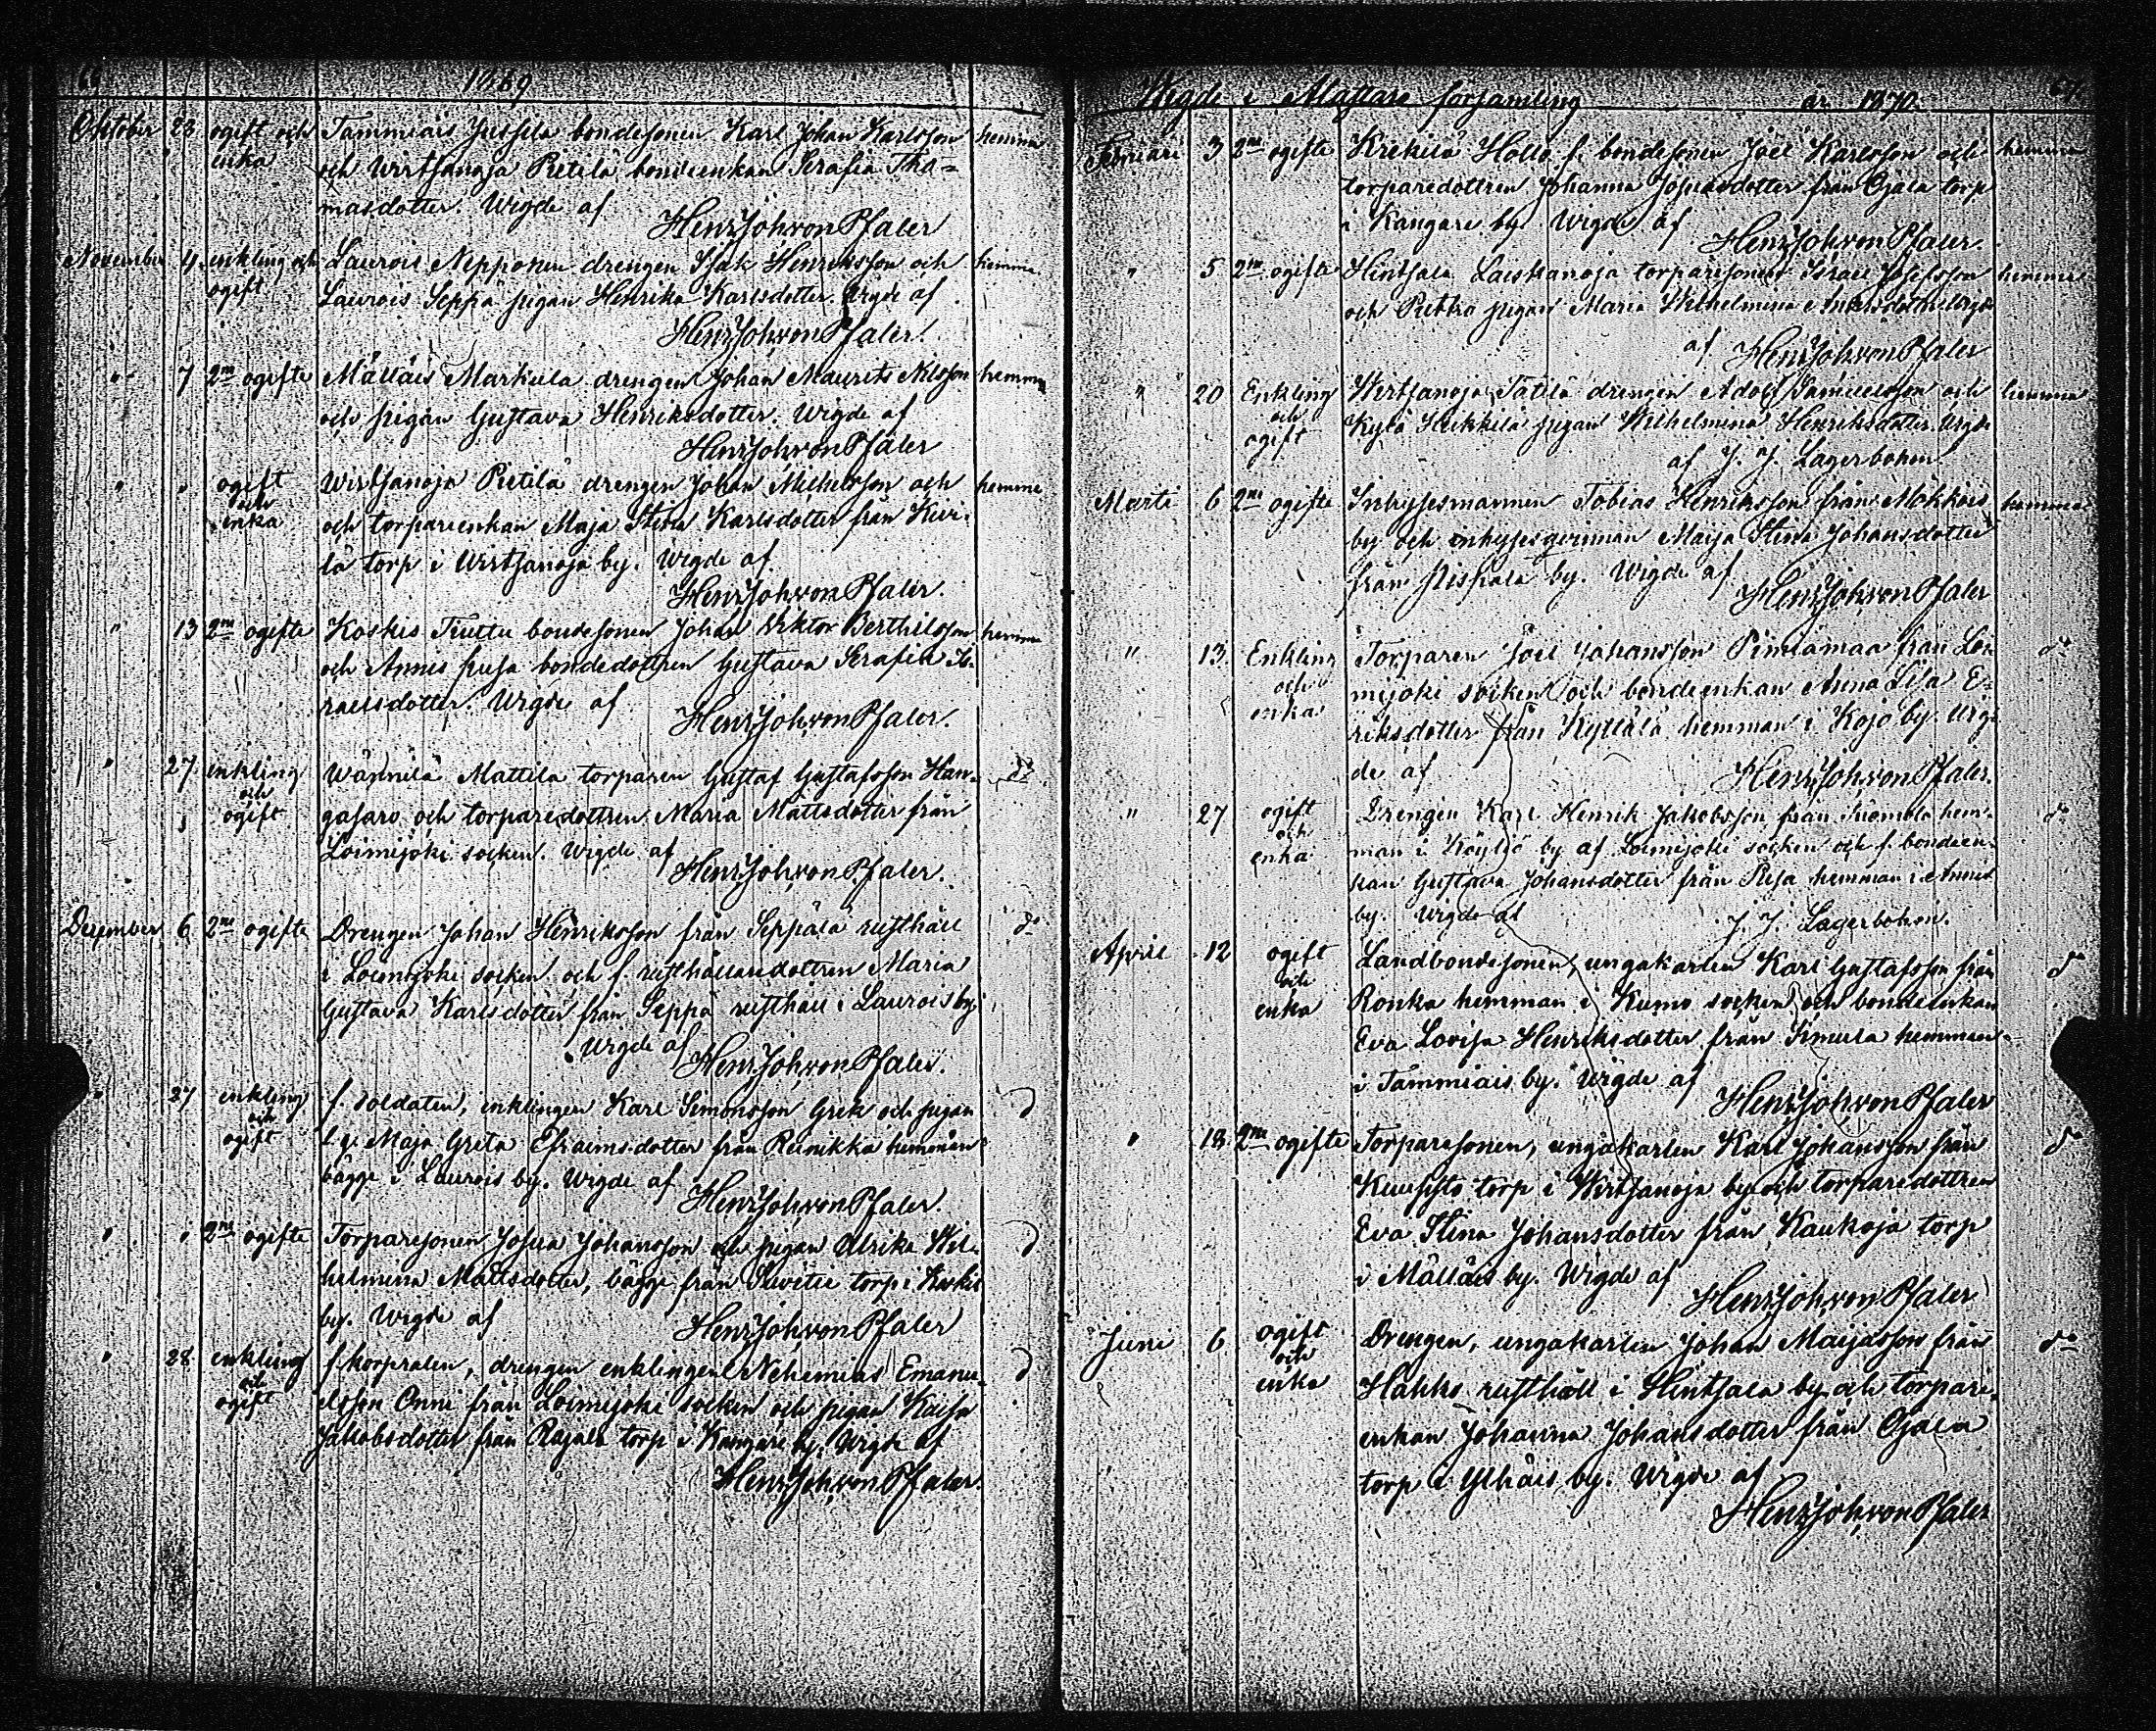 66
1869
Oktober 23 ogift och enka Tammiais Jussila bondesonen Karl Johan Karlsson hemma
och Wirtsanoja Pietilä bondeenkan Serafia Tho=
masdotter. Wigde af
Henr. Joh. von Pfaler
November 4. enkling och ogift Laurois Nepponen drengen Isak Henriksson och hemma
Laurois Seppä pigan Henrika Karlsdotter. Wigde af
Henr. Joh. von Pfaler.
" 7 2ne ogifte Mälläis Markula drengen Johan Maurits Nilsson hemma
och pigan Gustava Henriksdotter. Wigde af
Henr. Joh. von Pfaler
" " ogift och enka Wirtsanoja Pietilä drengen Johan Michelsson och hemma
och torpareenkan Maja Stina Karlsdotter från Kivi-
lä torp i Wirtsanoja by. Wigde af
Henr. Joh. von Pfaler.
" 13 2ne ogifte Koskis Tuttu bondesonen Johan Viktor Berthilsson hemma
och Annis pusa bondedottren Gustava Serafia Is-
raelsdotter. Wigde af
Henr. Joh. von Pfaler.
" 27. enkling och ogift Wännilä Mattila torparen Gustaf Gustafsson Han- do
gasaro och torparedottren Maria Mattsdotter från
Loimijoki socken. Wigde af
Henr. Joh. von Pfaler.
December 6 2ne ogifte Drengen Johan Henriksson från Seppälä rusthåll do
i Loimijoki socken och f. rusthållaredottren Maria
Gustava Karlsdotter från Seppä rusthåll i Laurois by
Wigde af
Henr. Joh. von Pfaler.
" 27 enkling och ogift f. soldaten, enklingen Karl Simonsson Grek och pigan d
Maja Greta Efraimsdotter från Reinikka hemman
bägge i Laurois by. Wigde af
Henr. Joh. von Pfaler.
" " 2ne ogifte Torparesonen Josua Johansson och pigan Ulrika Wil- d
helmina Mattsdotter, bägge från torp i Koskis
by. Wigde af
Henr. Joh. von Pfaler
" 28 enkling och ogift f. korpralen, drengen enklingen Nehemias Emanu- d
elsson Onni från Loimijoki socken och pigan Kaisa
Jakobsdotter från Rajala torp i Kangare by. Wigde af
Henr. Joh. von Pfaler.
Wigde i Mattare församling år 1870. 67.
Februari 3 2ne ogifte Krekilä Hollo f. bondesonen Joel Karlsson och hemma
torparedottren Johanna Johansdotter från Ojala torp
i Kangare by. Wigde af
Henr. Joh. von Pfaler.
" 5 2ne ogifte Hintsala Laiskanoja torparesonen Israel Josefsson hemma
och Pietko pigan Maria Wilhelmina Andersdotter Wigde
af Henr. Joh. von Pfaler
" 20 Enkling och ogift Wirtsanoja Tätilä drengen Adolf Samuelsson och hemma
Kylä Heikkilä pigan Wilhelmina Henriksdotter. Wigde
af J. J. Lagerbohm
Marti 6 2ne ogifte Inhysesmannen Tobias Henriksson från Mökkois hemma
by och inhysesqvinnan Maija Stina Johansdotter
från Pispala by. Wigde af
Henr. Joh. von Pfaler
" 13. Enkling och enka Torparen Joel Johansson Pimiämaa från Loi- do
mijoki socken och bondeenkan Anna Lisa E-
riksdotter från Kyttälä hemman i Kojo by. Wig-
de af Henr. Joh. von Pfaler.
" 27 ogift och enka Drengen Karl Henrik Jakobsson från hem- do
man i Köyliö by af Loimijoki socken och f. bondeen-
kan Gustava Johansdotter från Pusa hemman i Annis
by. Wigde af J. J. Lagerbohm.
April 12 ogift och enka Landbondesonen, ungakarlen Karl Gustafsson från do
Ronka hemman i Kumo socken och bondeenkan
Eva Lovisa Henriksdotter från Simula hemman
i Tammiais by. Wigde af
Henr. Joh. von Pfaler
" 18. 2ne ogifte Torparesonen, ungakarlen Karl Johansson från do
Kuusisto torp i Wirtsanoja by och torparedottren
Eva Stina Johansdotter från Kaukoja torp
i Mälläis by. Wigde af
Henr. Joh. von Pfaler
Juni 6 ogift och enka Drengen, ungakarlen Johan Maijasson från do
Hakko rusthåll i Hintsala by och torpare-
enkan Johanna Johansdotter från Ojala
torp i Ylhäis by. Wigde af
Henr. Joh. von Pfaler